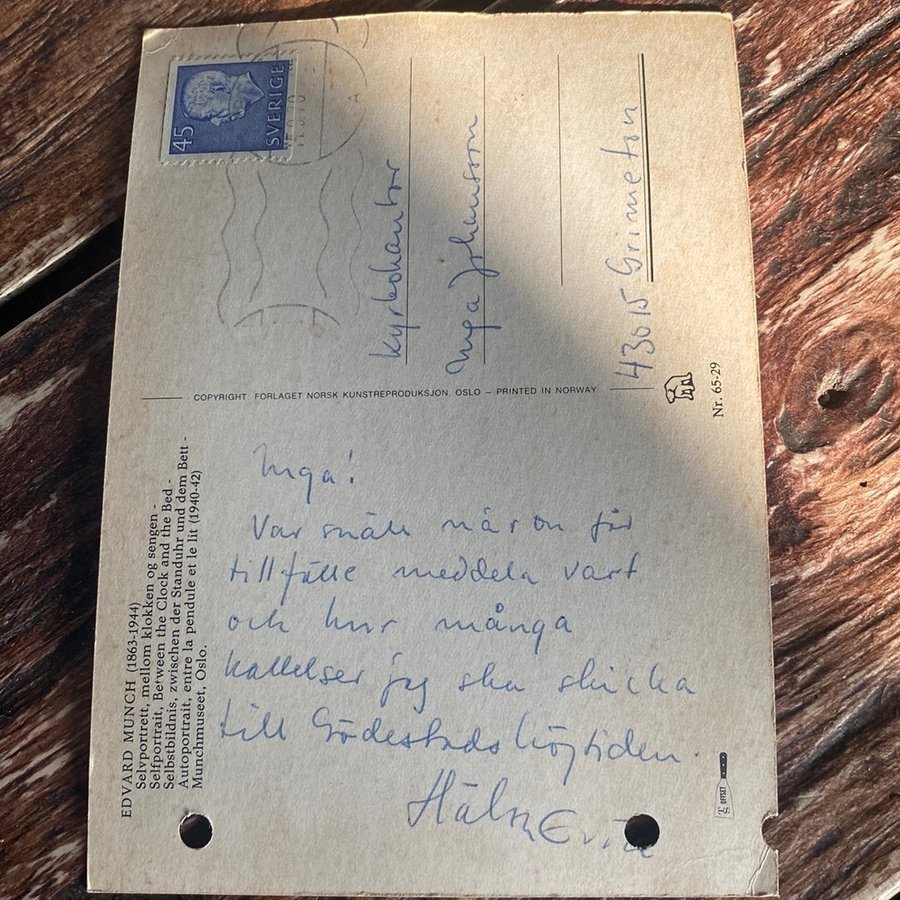 45
SVERIGE
Kyrkokantor
Inga Johansson
43015 Grimeton
COPYRIGHT: FORLAGET NORSK KUNSTREPRODUKSJON, OSLO – PRINTED IN NORWAY
Nr. 65-29
EDVARD MUNCH (1863-1944)
Selvportrett, mellom klokken og sengen -
Selfportrait, Between the Clock and the Bed -
Selbstbildnis, zwischen der Standuhr und dem Bett -
Autoportrait, entre la pendule et le lit (1940-42)
Munchmuseet, Oslo.
Inga!
Var snäll när du får
tillfälle meddela vart
och hur många
kallelser jag ska skicka
till Gödestadshögtiden.
OFFSET